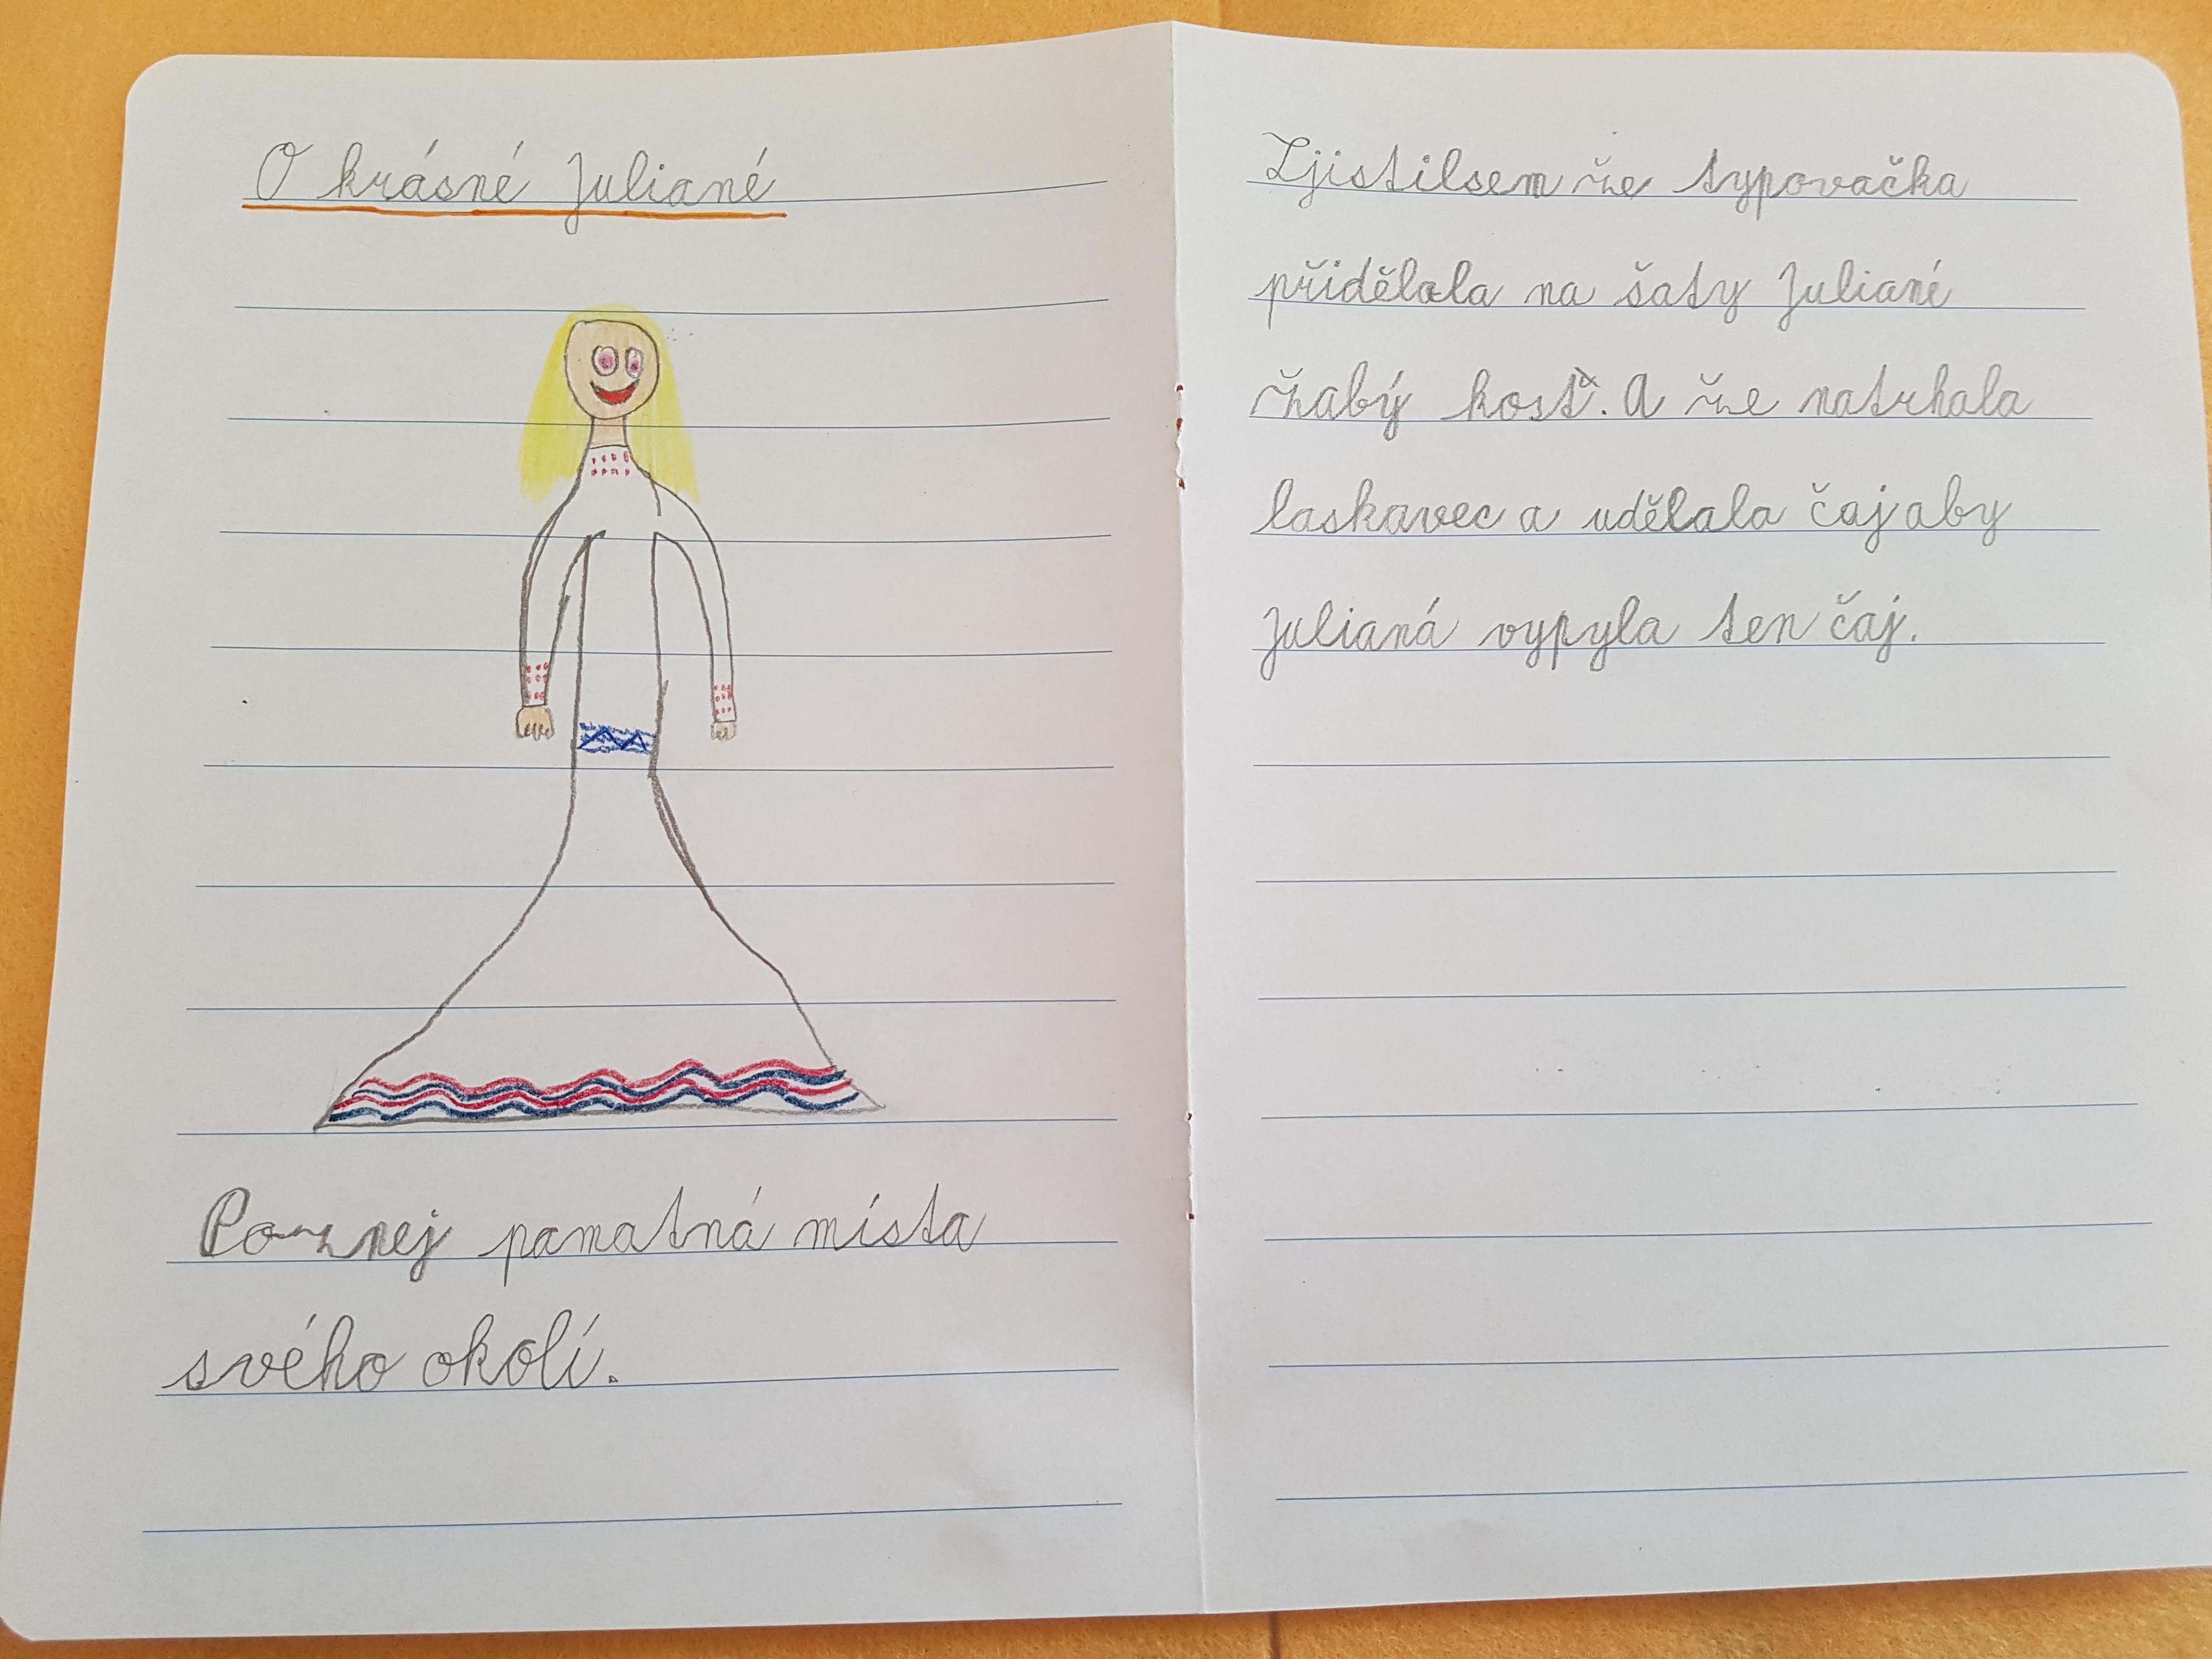 O krásné Juliané
Poznej pamatná místa
svého okolí.
Zjistilsem že typovačka
přidělala na šaty Juliané
žabý kosť. A že natrhala
laskavec a udělala čaj aby
Julianá vypyla ten čaj.